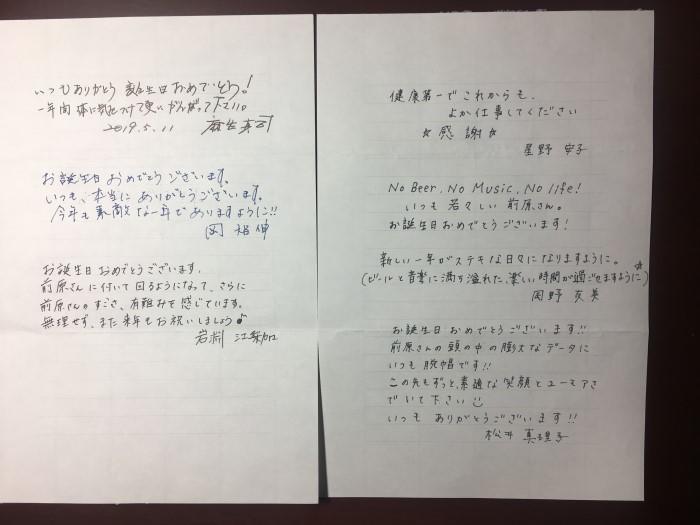 いつもありがとう 誕生日おめでとう!
一年間 体に気をつけて がんばって下さい。
2019.5.11 麻生真司
お誕生日おめでとうございます。
いつも、本当にありがとうございます。
今年も素敵な一年でありますように!!
岡 裕伸
お誕生日おめでとうございます。
前原さんに付いて回るようになって、さらに
前原さんのすごさ、有難みを感じています。
無理せず、また来年もお祝いしましょう♪
岩渕
健康第一で これからも、
よか仕事してください
☆感謝☆
星野 幸子
No Beer, No Music, No life!
いつも若々しい前原さん。
お誕生日おめでとうございます!
新しい一年がステキな日々になりますように。
(ビールと音楽に満ち溢れた、楽しい時間が過ごせますように☆)
岡野 友美
お誕生日おめでとうございます!!
前原さんの頭の中の膨大なデータに
いつも脱帽です!!
この先もずっと、素適な笑顔とユーモアさ
でいて下さい
いつも ありがとうございます!!
松井 真理子